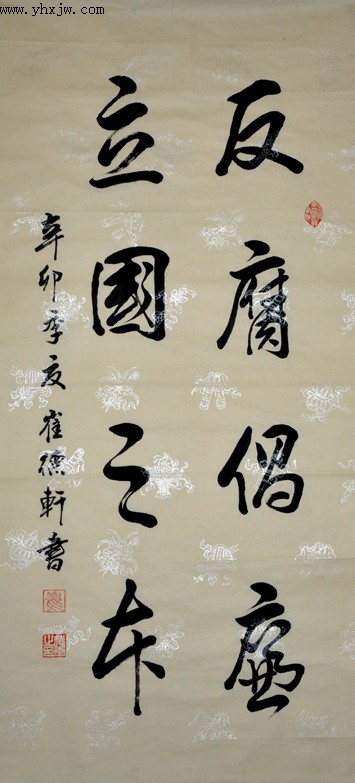 www.yhxjw.com
反腐倡廉
立國之本
辛卯季夏崔德軒書